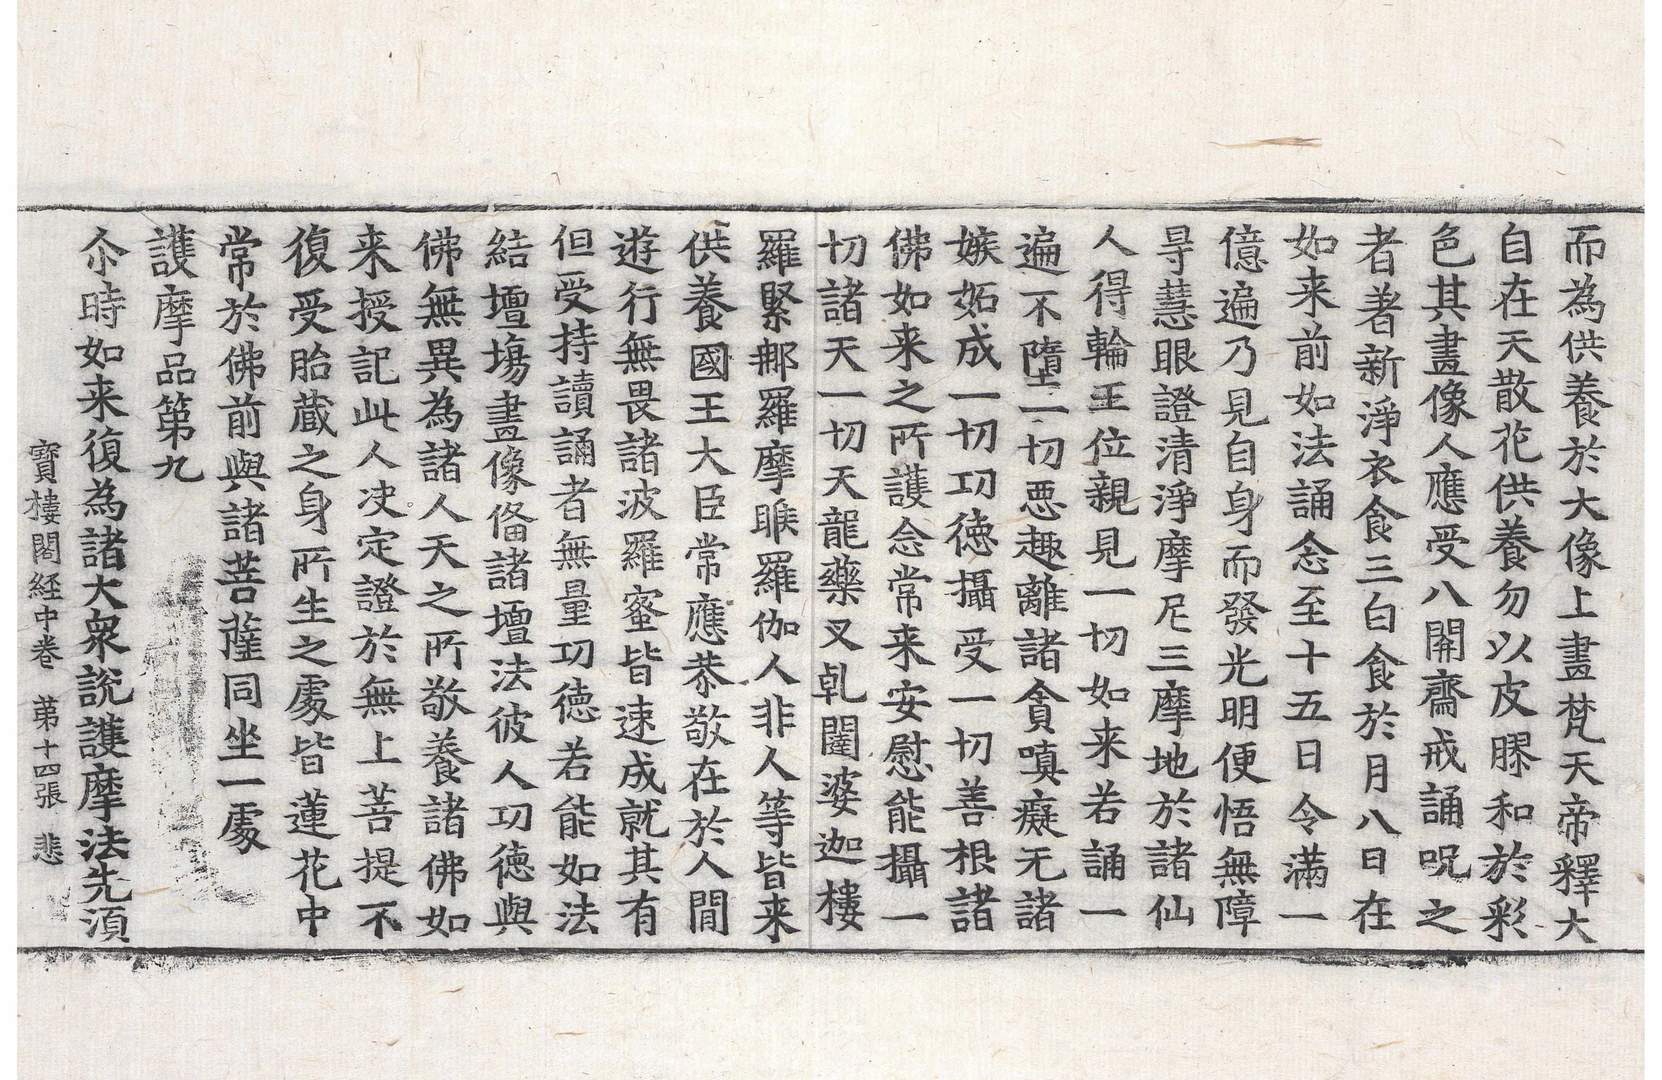 而為供養於大像上畫梵天帝釋大
自在天散花供養勿以皮膠和於彩
色其畫像人應受八關齋戒誦呪之
者著新淨衣食三白食於月八日在
如来前如法誦念至十五日令滿一
億遍乃見自身而發光明便悟無障
㝵慧眼證清淨摩尼三摩地於諸仙
人得輪王位親見一切如来若誦一
遍不墮一切惡趣離諸貪嗔癡无諸
嫉妬成一切功徳攝受一切善根諸
佛如来之所護念常来安慰能攝一
切諸天一切天龍藥叉乹闥婆迦樓
羅緊那羅摩睺羅伽人非人等皆来
供養國王大臣常應恭敬在於人間
遊行無畏諸波羅蜜皆速成就其有
但受持讀誦者無量功徳若能如法
結壇塲畫像俻諸壇法彼人功徳與
佛無異為諸人天之所敬養諸佛如
来授記此人决定證於無上菩提不
復受胎蔵之身所生之處皆蓮花中
常於佛前與諸菩薩同坐一處
護摩品第九
尒時如来復為諸大衆說護摩法先湏
寳樓閣経中卷 第十四張 悲